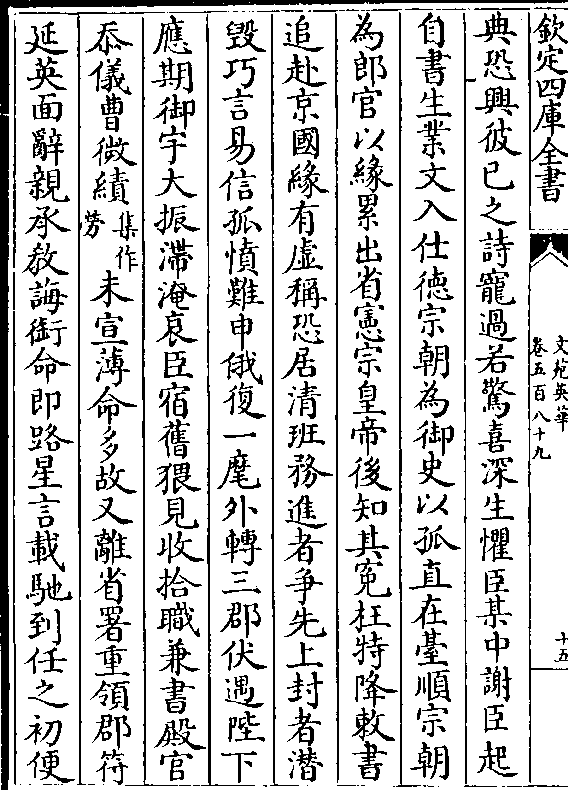 欽定四庫全書
文苑英華
卷五百八十九
十五
典恐興彼已之詩寵過若驚喜深生懼臣某中謝臣起
自書生業文入仕德宗朝為御史以孤直在臺順宗朝
為郎官以緣累出省憲宗皇帝後知其寃枉特降敕書
追赴京國緣有虛稱恐居清班務進者爭先上封者潛
毀巧言易信孤憤難申俄復一麾外轉三郡伏遇陛下
應期御宇大振滯淹哀臣宿舊猥見收拾職兼書殿官
忝儀曹微績集作勞未宣薄命多故又離省署重領郡符
延英面辭親承教誨銜命即路星言載馳到任之初便